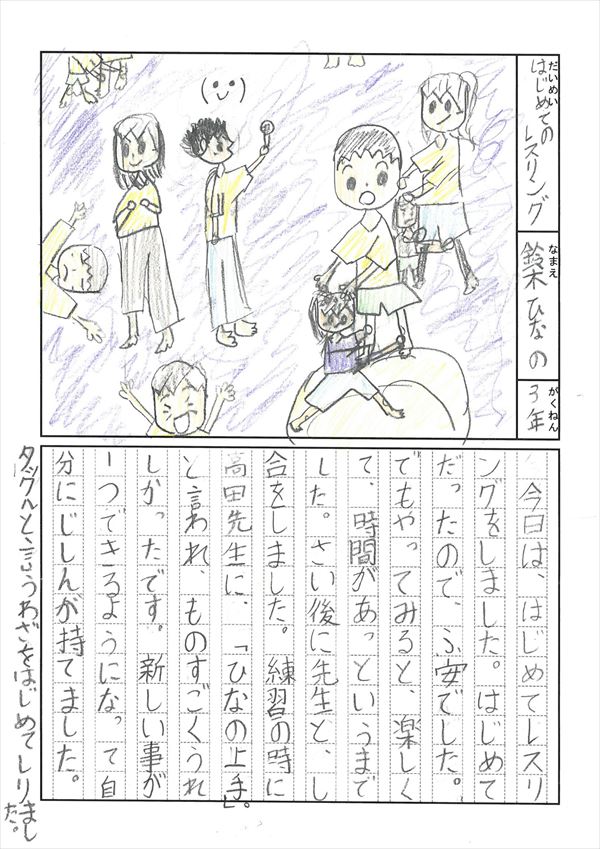 だいめい
はじめての
レスリング
なまえ
鈴木ひなの
がくねん
3年
今日は、はじめてレスリ
ングをしました。はじめて
だったので、ふ安でした。
でもやってみると、楽しく
て、時間があっというまで
した。さい後に先生と、し
合をしました。練習の時に
高田先生に、「ひなの上手。」
と言われ、ものすごくうれ
しかったです。新しい事が
一つできるようになって自
分にじしんが持てました。
タックルと言うわざをはじめてしりました。